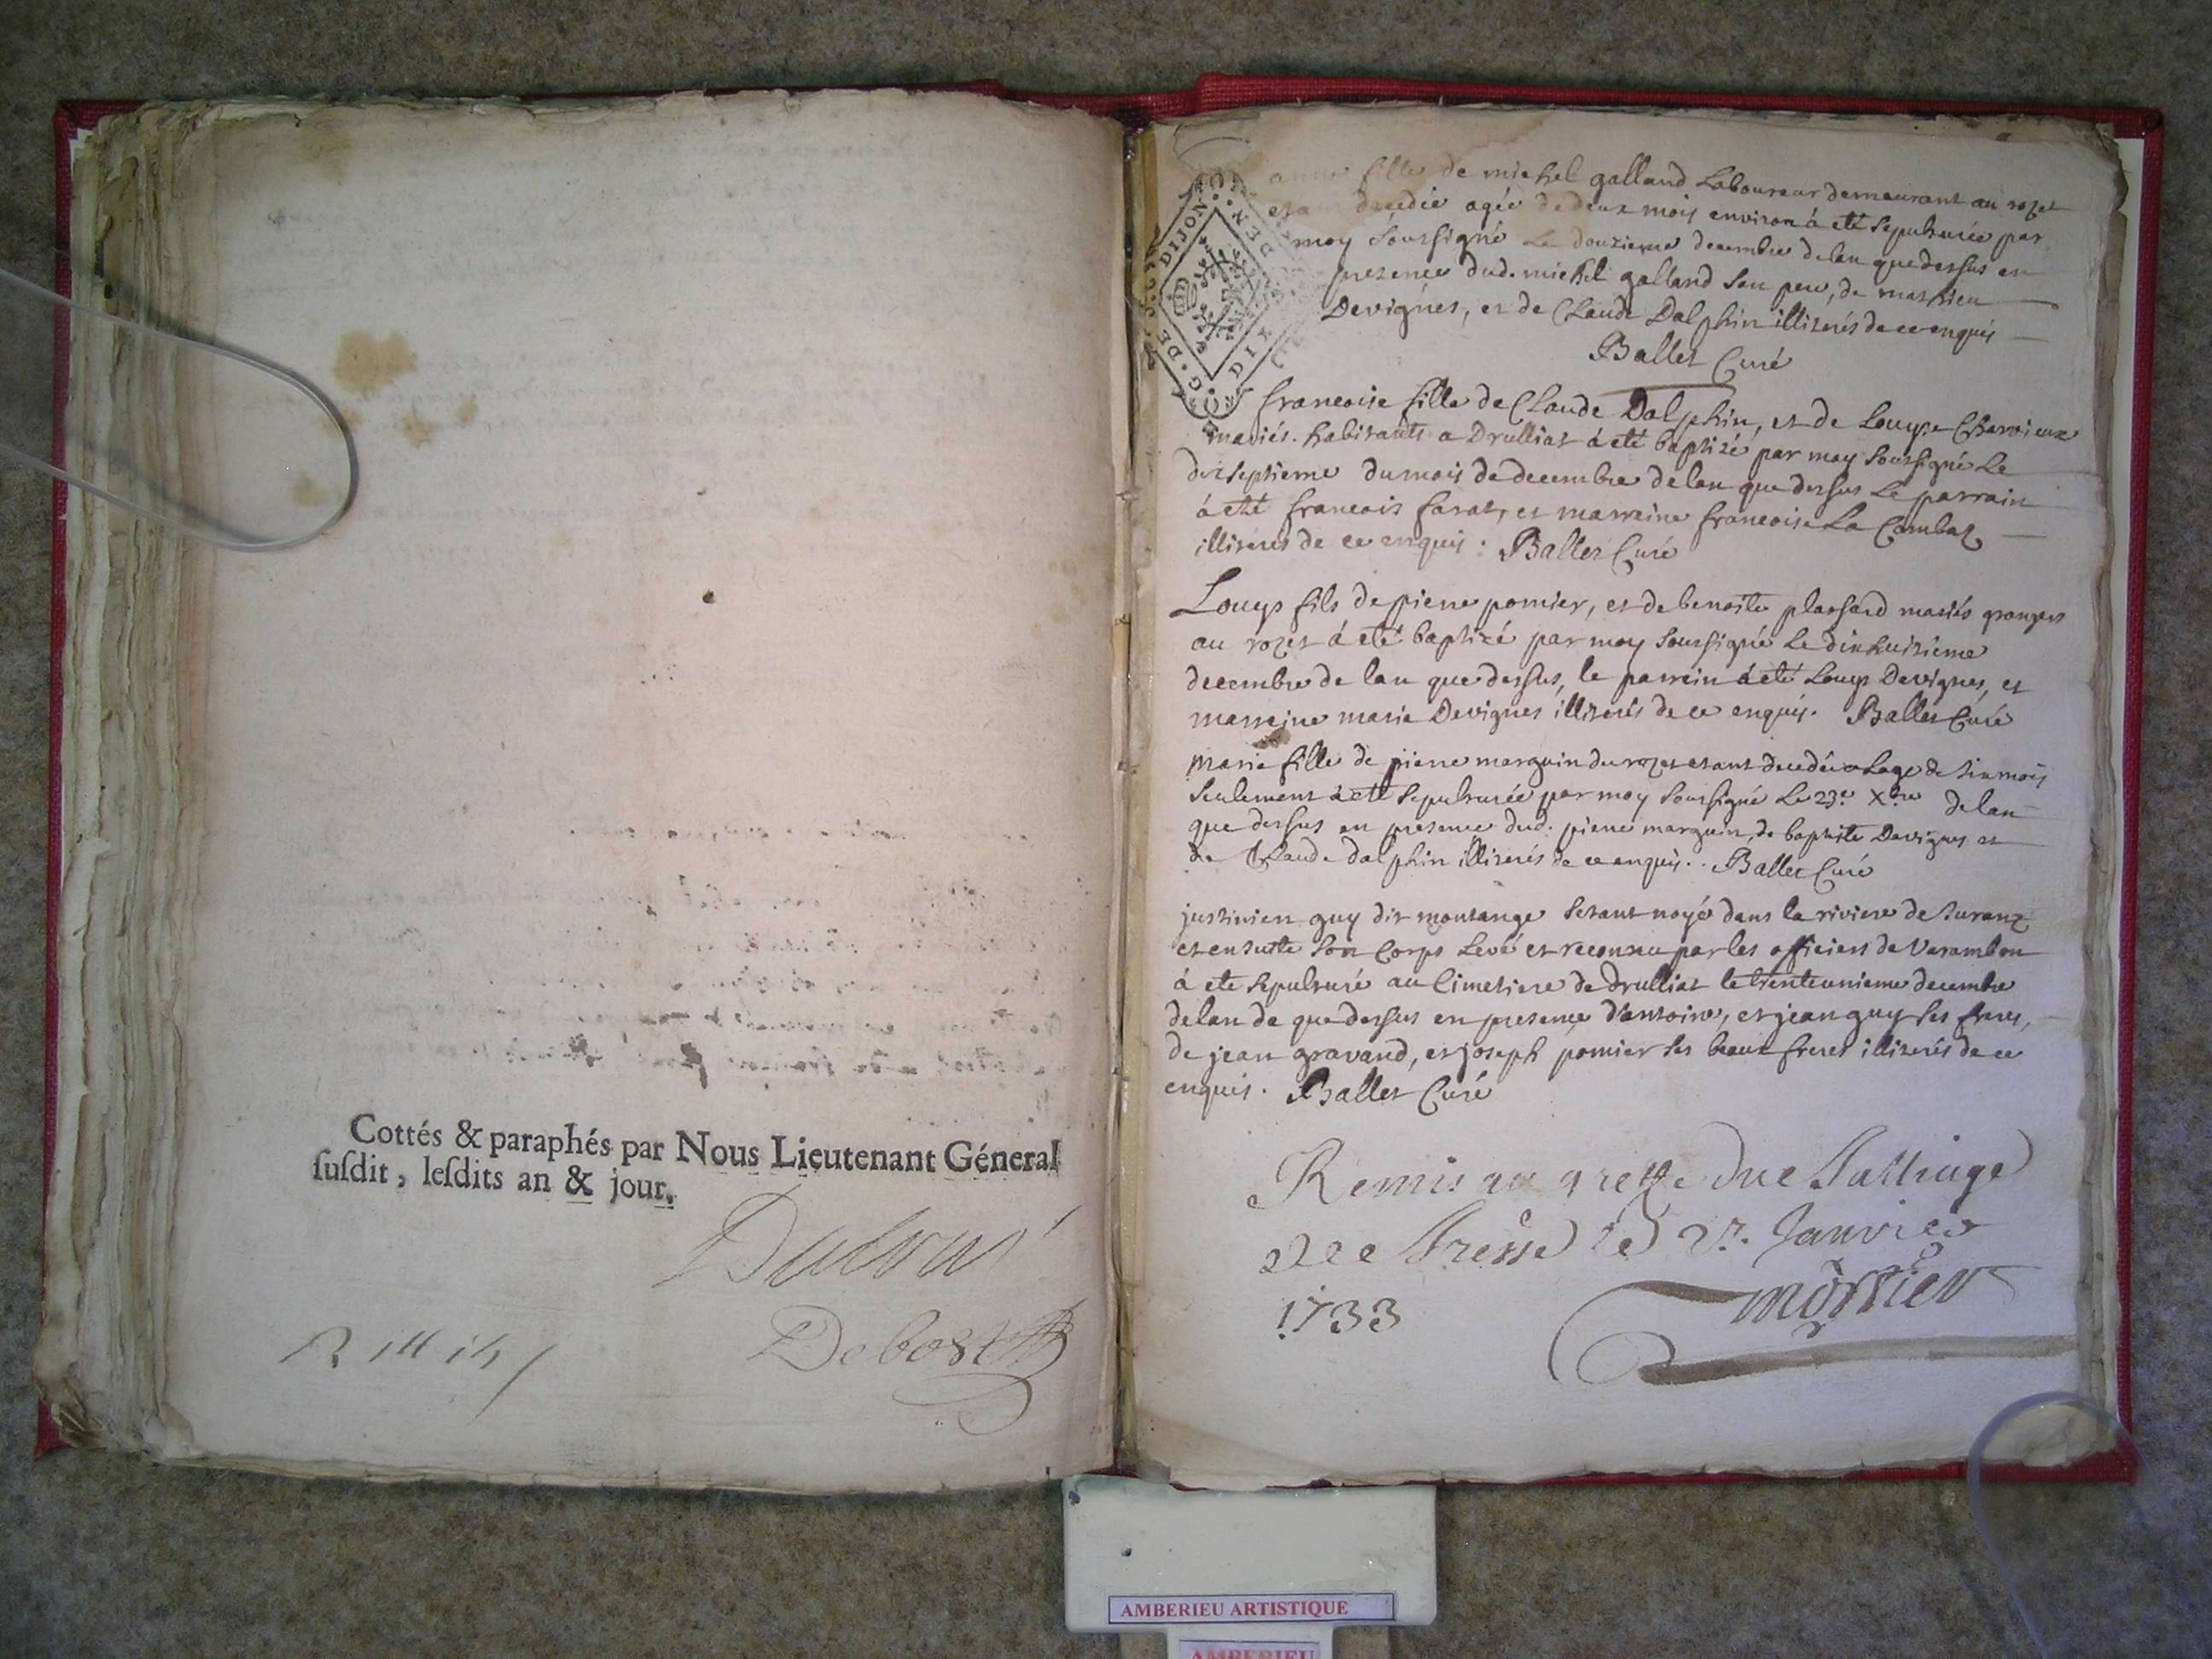 Cottés & paraphés par Nous Lieutenant Géneral
ſuſdit, leſdits an & jour.
Debost
G. DE DIJON
DIX DEN
anne fille de michel galland Laboureur demeurant au rozet
decedée agée de deux mois environ à eté sepulturée par
moy soussigné Le douzieme decembre de lan que dessus en
presence dud. michel galland son pere, de mathieu
Devignes, et de Claude Dalphin illiterés de ce enquis
Ballet Curé
francoise fille de Claude Dalphin, et de Louyse Charvieux
mariés habitants a Drulliat à eté baptizé par moy soussigné Le
dixseptieme du mois de decembre de lan que dessus Le parrain
à eté francois farat, et marraine francoise La Combaz
illiterés de ce enquis : Ballet Curé
Louys fils de pierre pomier, et de benoite plassard mariés grangers
au rozet à eté baptizé par moy soussigné Le dixhuitieme
decembre de lan que dessus, le parrein à eté Louys Devignes, et
marreine marie Devignes illiterés de ce enquis. Ballet Curé
marie fille de pierre marguin du rozet etant decedée a Lage de six mois
seulement à eté sepulturée par moy soussigné Le 23e Xbre de lan
que dessus en presence dud. pierre marguin, de baptiste Devignes et
de Claude dalphin illiterés de ce enquis. . Ballet Curé
justinien guy dit montange setant noyé dans la riviere de Suranz
et ensuite son Corps Levé et reconnu par les officiers de Varambon
à ete sepulturé au Cimetiere de drulliat le trenteunieme decembre
de lan de que dessus en presence d'antoine, et jean guy ses freres,
de jean gravand, et joseph pomier ses beaux freres illiterés de ce
enquis. Ballet Curé
Remis au greffe du Balliage
de Bresse le 2r. Janvier
1733
AMBERIEU ARTISTIQUE
AMBERIEU